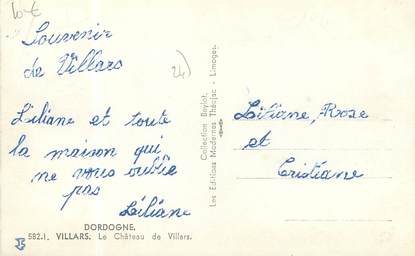 10 €
Souvenir
de Villars
24)
Liliane et toute
la maison qui
ne vous oublie
pas
Liliane
DORDOGNE.
582.1. VILLARS. Le Château de Villars.
Collection Beylot.
Les Editions Modernes Théojac - Limoges.
Liliane, Rose
et
Cristiane